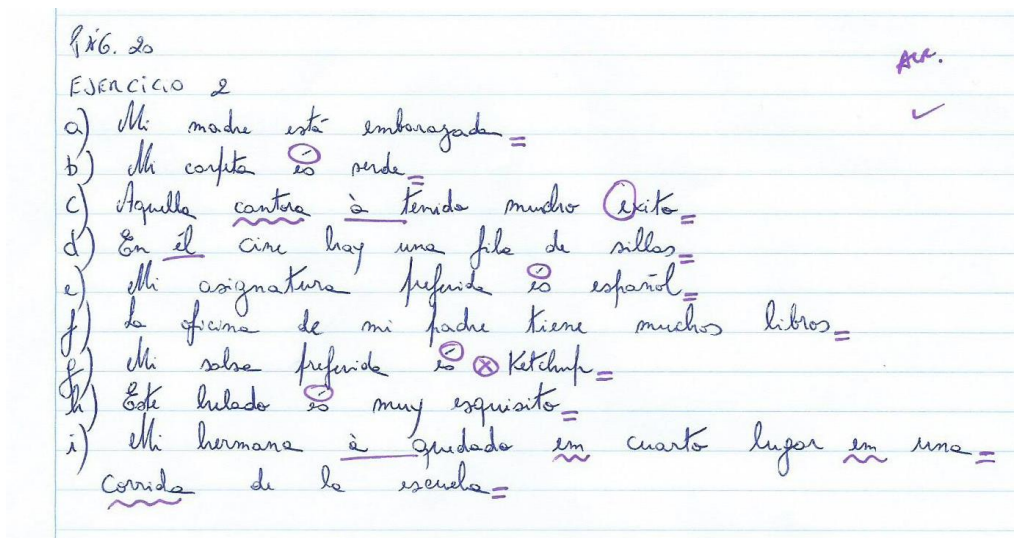 PÁG. 20
ACR.
EJERCICIO 2
a) Mi madre está embarazada
b) Mi carpeta és verde
c) Aquella cantora à tenido mucho èxito
d) En él cine hay una fila de sillas
e) Mi asignatura preferida és español
f) La oficina de mi padre tiene muchos libros
g) Mi salsa preferida és Ketchup
h) Este helado és muy esquisito
i) Mi hermana à quedado em cuarto lugar em una
corrida de la escuela